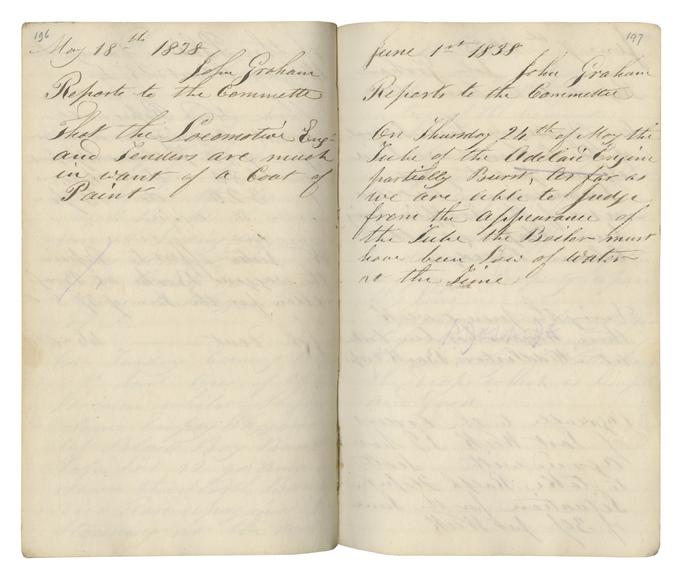 196
May 18th 1838
John Graham
Reports to the Committe
That the Locomotive Engs
and Tenders are much
in want of a Coat of
Paint
197
June 1st 1838
John Graham
Reports to the Committee
On Thursday 24th of May the
Tube of the Adelaie Engine
partially Burst, as far as
we are able to Judge
from the appearance of
the Tube the Boiler must
have been Low of water
at the Time